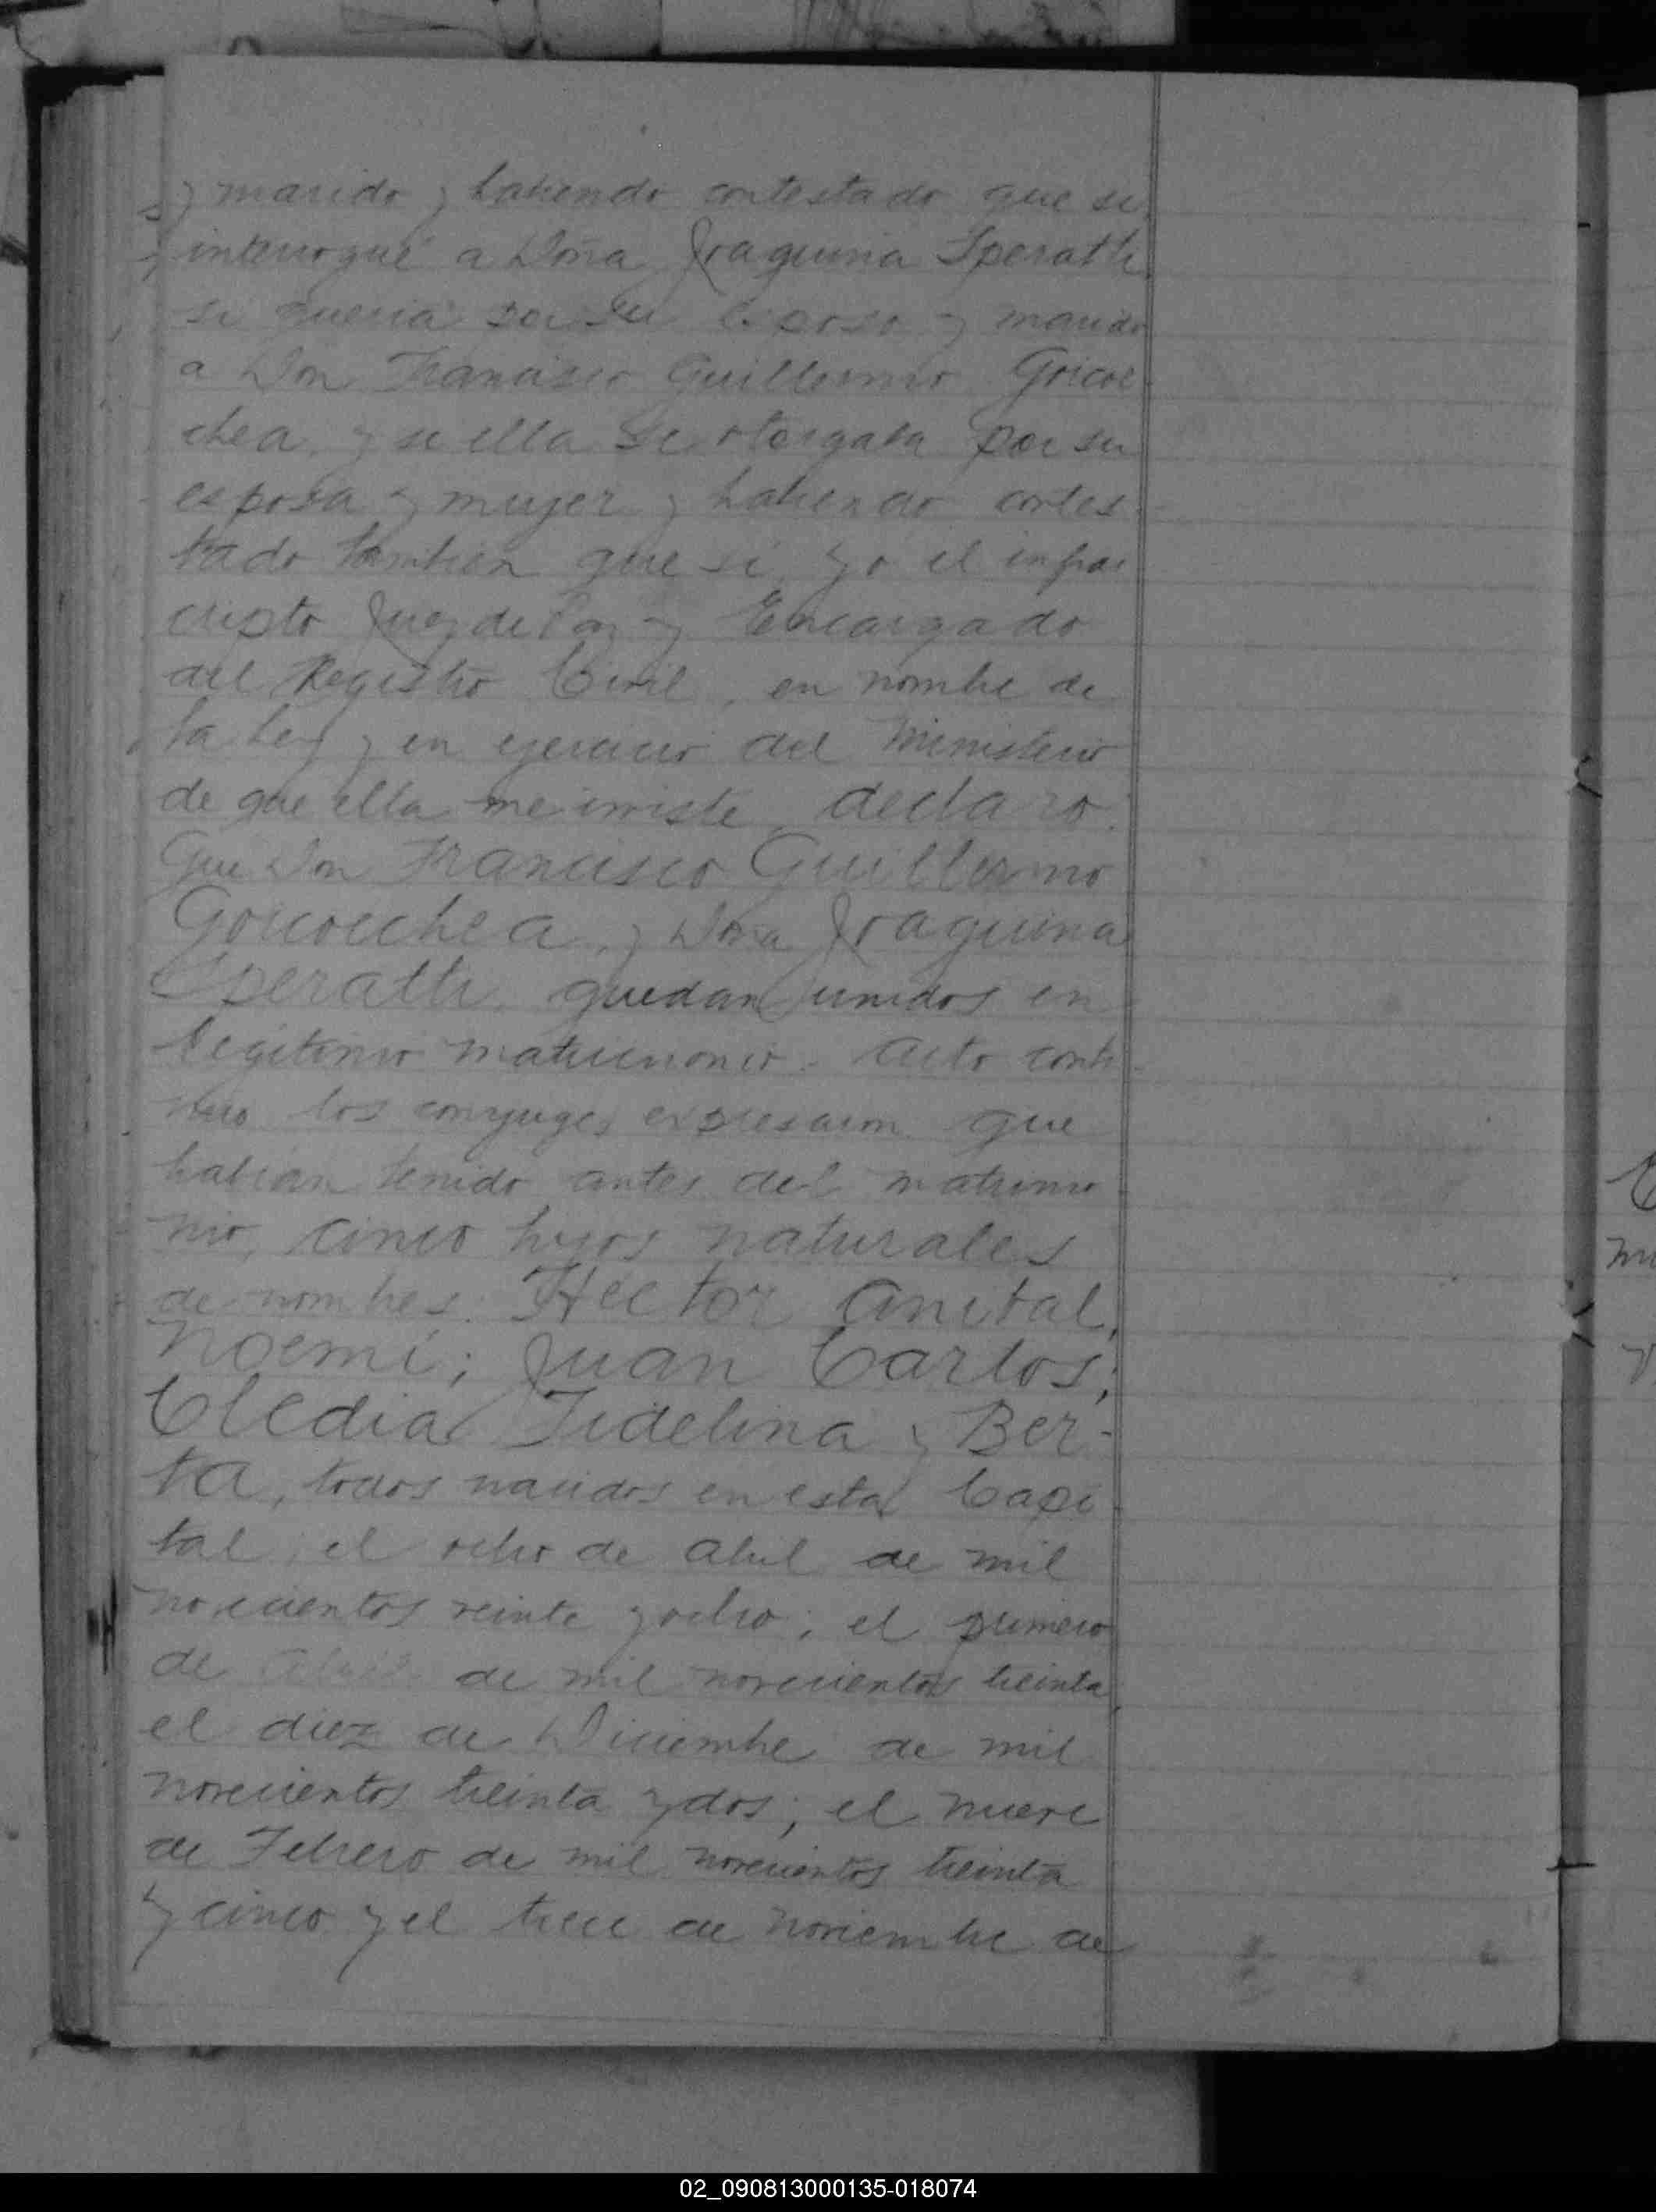 y marido y habiendo contestado que si,
interrogué a Doña Joaquina Speratti
si queria por su Esposo y marido
a Don Francisco Guillermo Goicoe-
chea, y si ella se otorgaba por su
esposa y mujer y habiendo contes-
tado tambien que si, yo el infras
cripto Juez de Paz y Encargado
del Registro Civil, en nombre de
la Ley y en ejercicio del Ministerio
de que ella me inviste, declaro:
Que Don Francisco Guillermo
Goicoechea, y Doña Joaquina
Speratti, quedan unidos en
legitimo matrimonio. Acto conti-
nuo los conyuges expresaron que
habian tenido antes del matrimo
nio, cinco hijos naturales
de nombres: Hector Anibal,
Noemí; Juan Carlos;
Cledia Fidelina y Ber-
ta, todos nacidos en esta Capi-
tal, el ocho de Abril de mil
novecientos veinte y ocho; el primero
de Abril de mil novecientos treinta,
el diez de Diciembre de mil
novecientos treinta y dos; el nueve
de Febrero de mil novecientos treinta
y cinco y el trece de Noviembre de
02_090813000135-018074